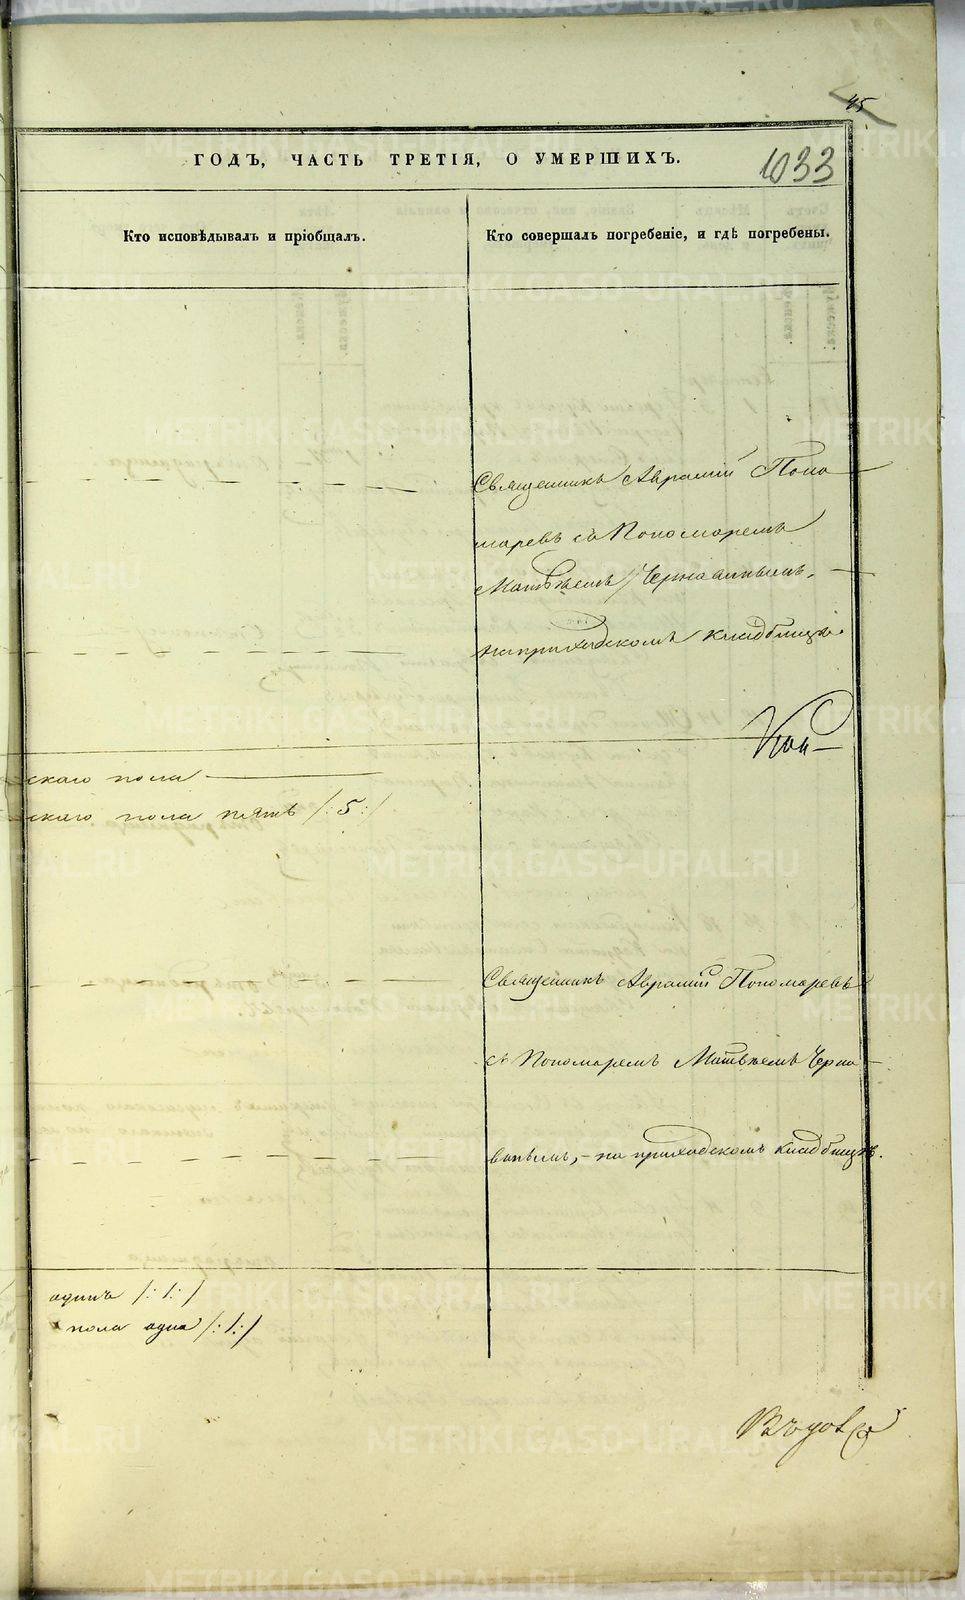 45
ГОДЪ, ЧАСТЬ ТРЕТІЯ, О УМЕРШИХЪ.
1033
Кто исповѣдывалъ и пріобщалъ.
Кто совершалъ погребеніе, и гдѣ погребены.
Священникъ Аврамій Поно
маревъ съ Пономаремъ
Матѣѣемъ Чернавинымъ,
на приходскомъ кладбищѣ.
скаго пола
скаго пола пять /:5:/
Священникъ Аврамій Пономаревъ
съ Пономаремъ Матвѣемъ Черна
винымъ, - на приходскомъ кладбищѣ.
одинъ /:1:/
пола одна /:1:/
METRIKI.GASO-URAL.RU